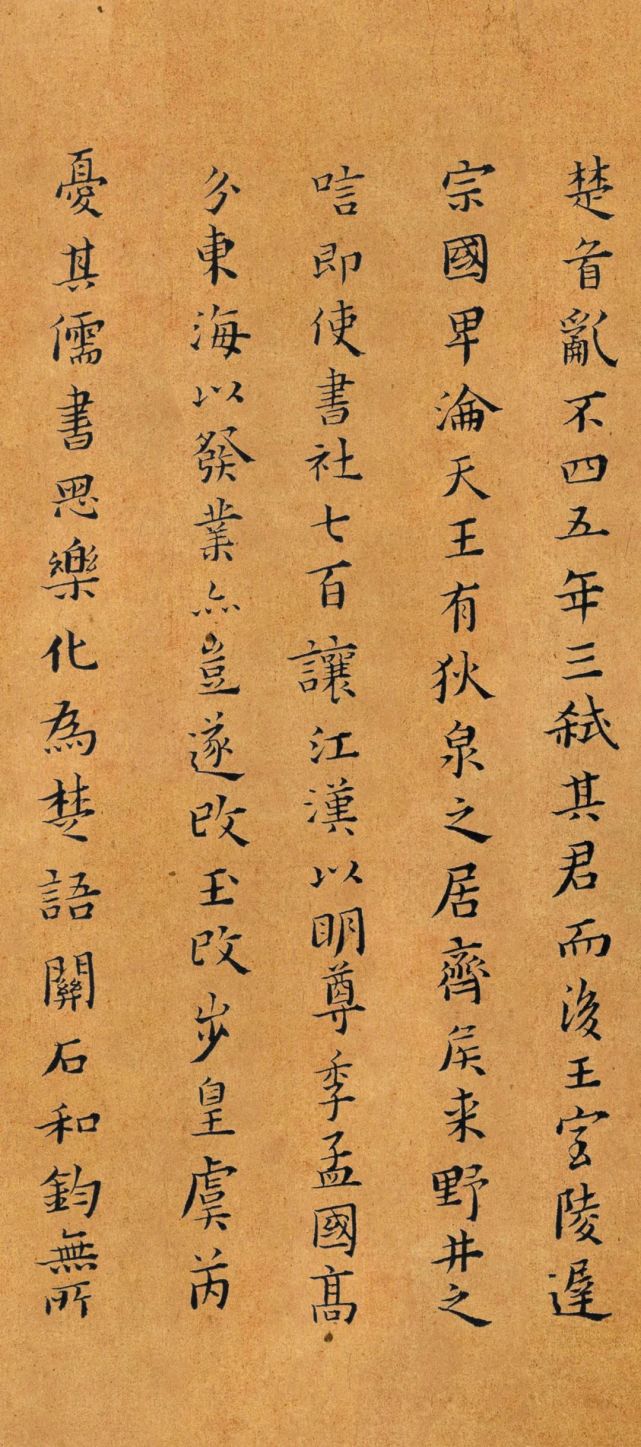 楚首亂不四五年三弑其君而後王室陵遲
宗國卑淪天王有狄泉之居齊侯来野井之
唁即使書社七百讓江漢以明尊季孟國髙
分東海以發業亦豈遂改玉改步皇虞芮
憂其儒書思樂化為楚語關石和鈞無所